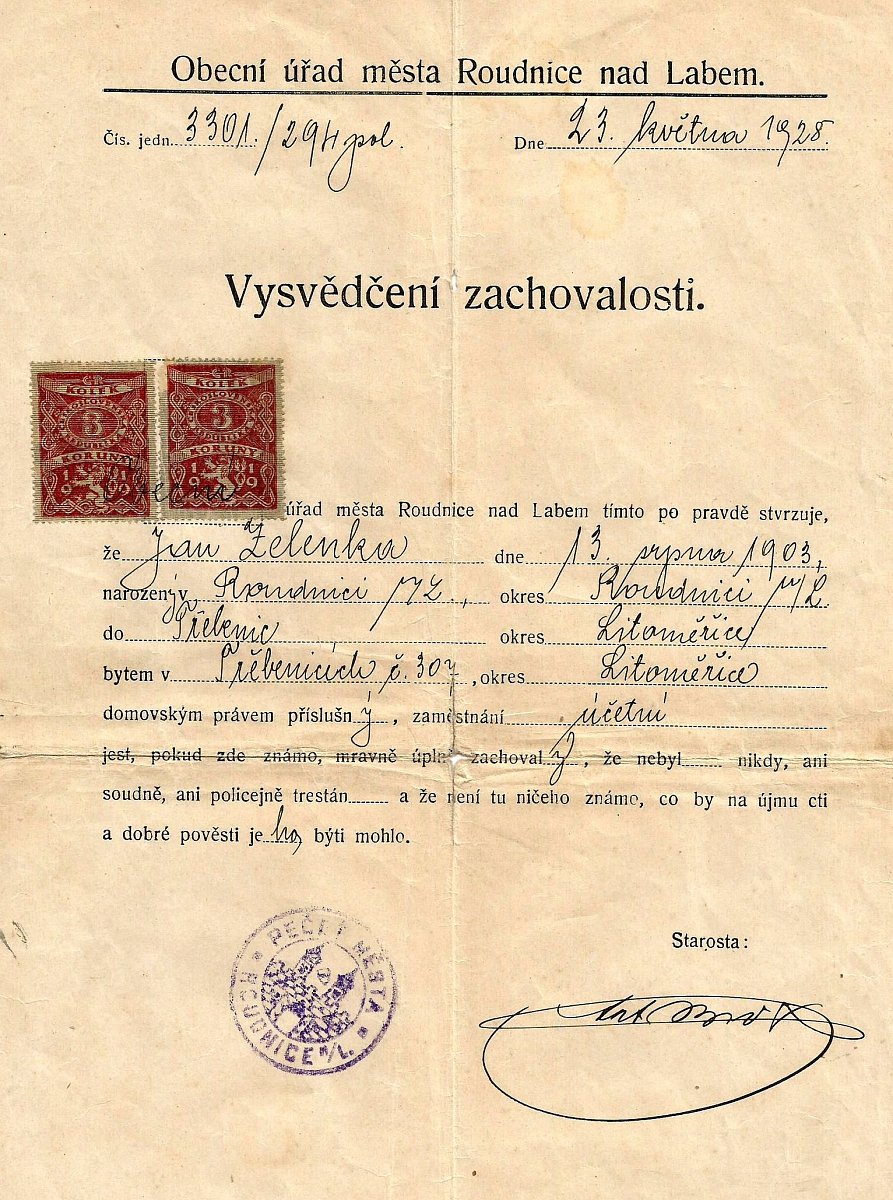 Obecní úřad města Roudnice nad Labem.
Čís. jedn. 3301./294 pol. Dne 23. května 1928.
Vysvědčení zachovalosti.
ČR ČR
KOLEK KOLEK
3 3
KORUNY KORUNY
1919 1919
Obecní úřad města Roudnice nad Labem tímto po pravdě stvrzuje,
že Jan Zelenka dne 13. srpna 1903,
narozený v Roudnici n/L., okres Roudnici n/L
do Třebenic okres Litoměřice
bytem v Třebenicích č. 307, okres Litoměřice
domovským právem příslušný, zaměstnání účetní
jest, pokud zde známo, mravně úplně zachovalý, že nebyl nikdy, ani
soudně, ani policejně trestán a že není tu ničeho známo, co by na újmu cti
a dobré pověsti jeho býti mohlo.
PEČEŤ MĚSTA
ROUDNICE n/L.
Starosta: